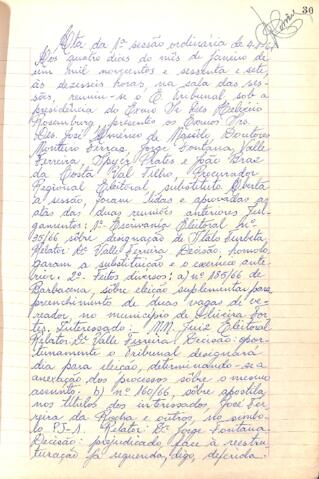 30
Ata da 1ª sessão ordinária de 4-1-67
Aos quatro dias do mês de janeiro de
um mil novecentos e sessenta e sete,
às dezesseis horas, na sala das ses-
sões, reuniu-se o E. Tribunal, sob a
presidência do Exmo Sr. Des. Helácio
Rosemburg, presentes os Exmos Srs.
Des. José Américo de Macêdo, Doutores
Monteiro Ferraz, Jorge Fontana, Valle
Ferreira, Prates e João Braz
da Costa Val Filho, Procurador
Regional Eleitoral, substituto. Aberta
a sessão, foram lidas e aprovadas as
atas das duas reuniões anteriores. Jul-
gamentos: 1º Escrivania Eleitoral nº
35/66 sôbre designação de Ítalo
Relator: Dr. Valle Ferreira. Decisão: homolo-
garam a substituição e o exercício ante-
rior. 2º Feitos diversos; a) nº 155/66 de
Barbacena, sôbre eleição suplementar para
preenchimento de duas vagas de ve-
reador, no município de Oliveira For-
tes. Interessado: MM. Juiz Eleitoral
Relator: Dr. Valle Ferreira Decisão: opor-
tunamente o Tribunal designará
dia para eleição, determinando-se a
anexação dos processos sôbre o mesmo
assunto. b) nº 160/66, sôbre apostila
nos títulos dos interessados, José Fer-
reira da Rocha e outros, no símbo-
lo PJ-1. Relator: Dr. Jorge Fontana
Decisão: prejudicado, face à reestru-
turação já requerida, digo, deferida.